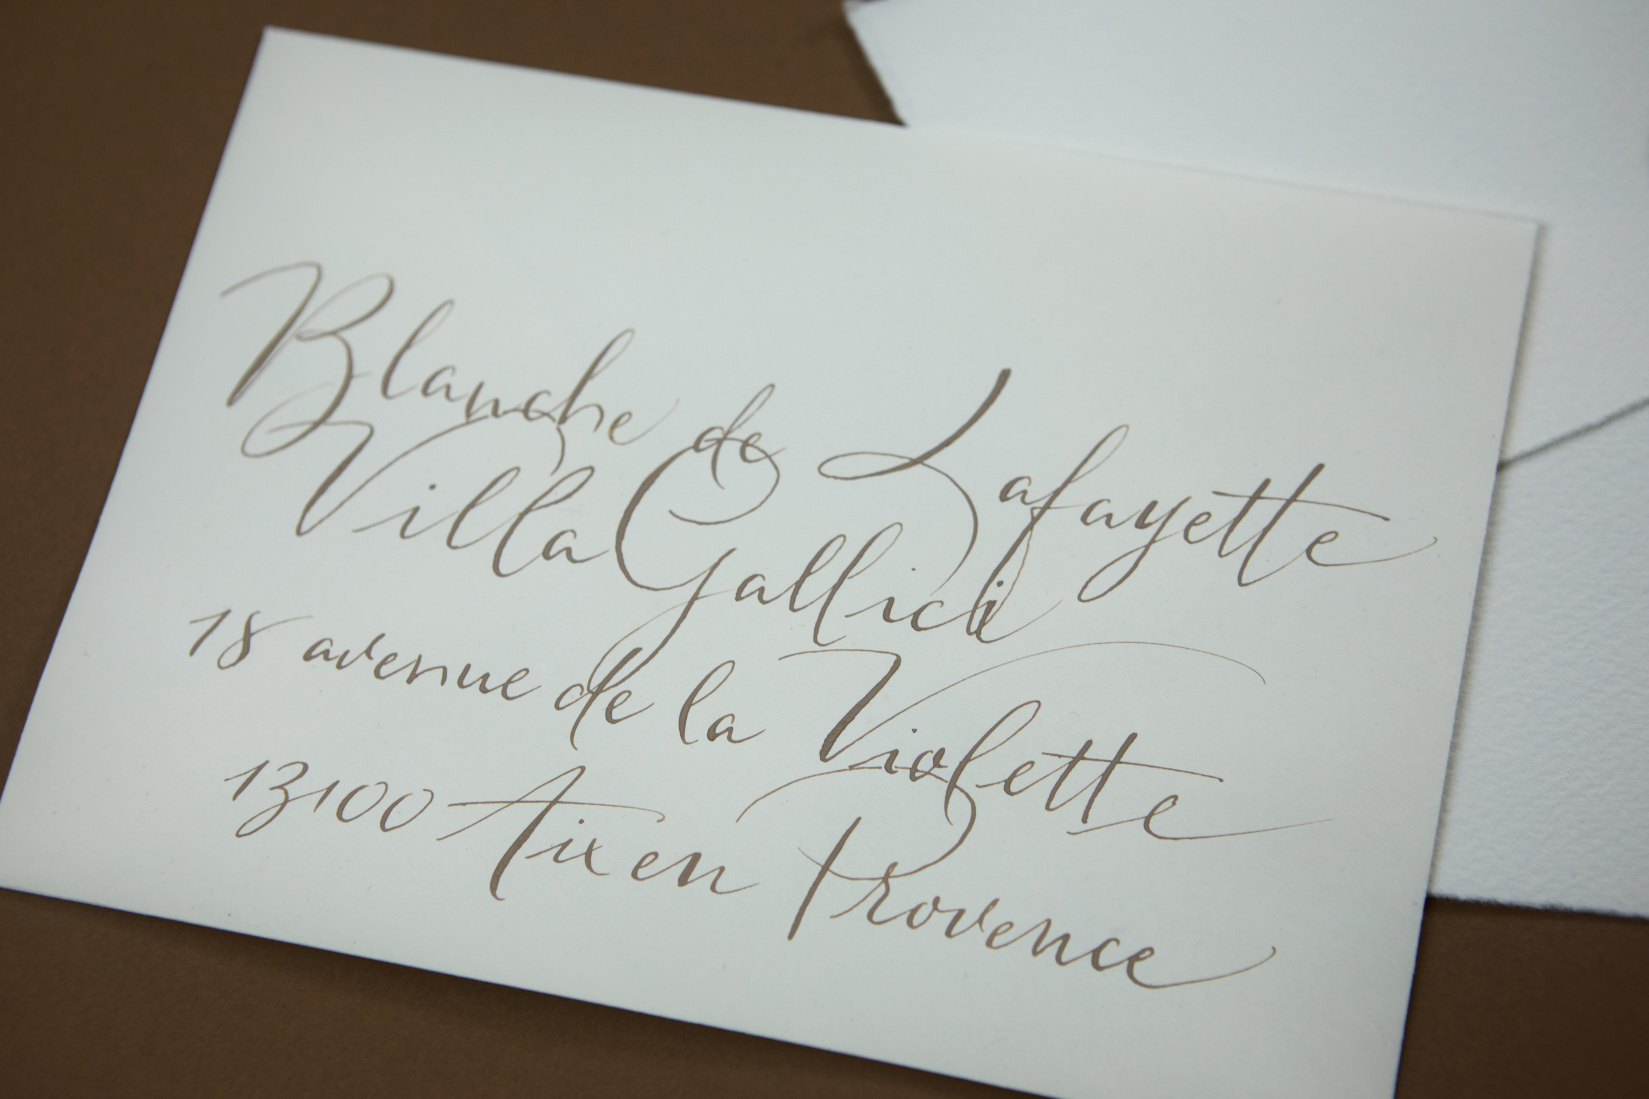 Blanche de Lafayette
Villa Gallici
18 avenue de la Violette
13100 Aix en Provence